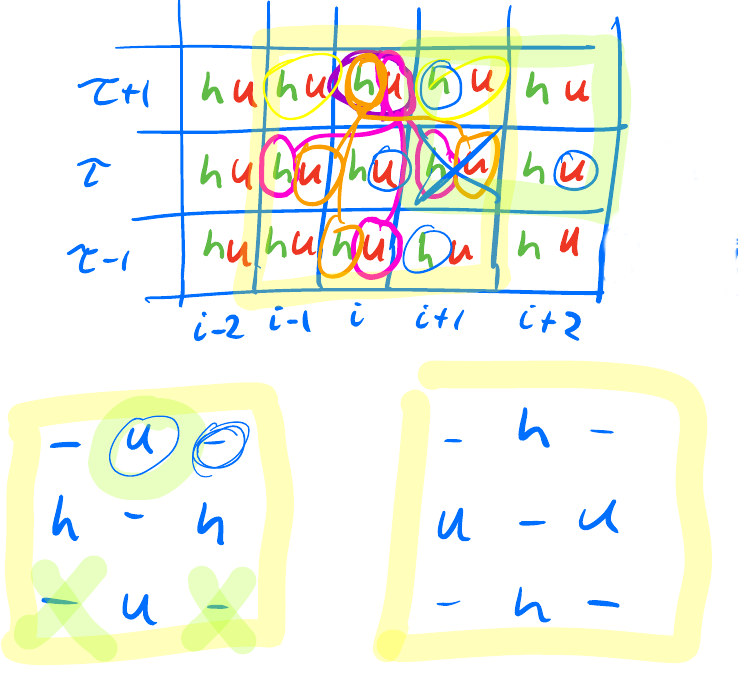 τ+1 h u h u h u h u h u
τ h u h u h u h u h u
τ-1 h u h u h u h u h u
i-2 i-1 i i+1 i+2
- u -
h - h
- u -
- h -
u - u
- h -